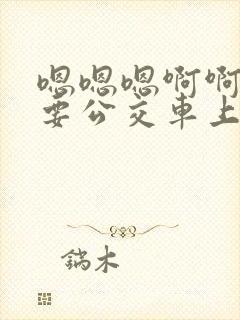 嗯嗯嗯啊啊
要公交車上
鍴木